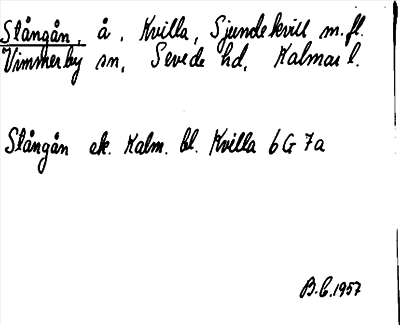 Stångån, å, Kvilla, Sjundekvill m.fl.
Vimmerby sn, Sevede hd, Kalmar l.
Stångån ek. Kalm. bl. Kvilla 6 G 7a
B.C. 1957